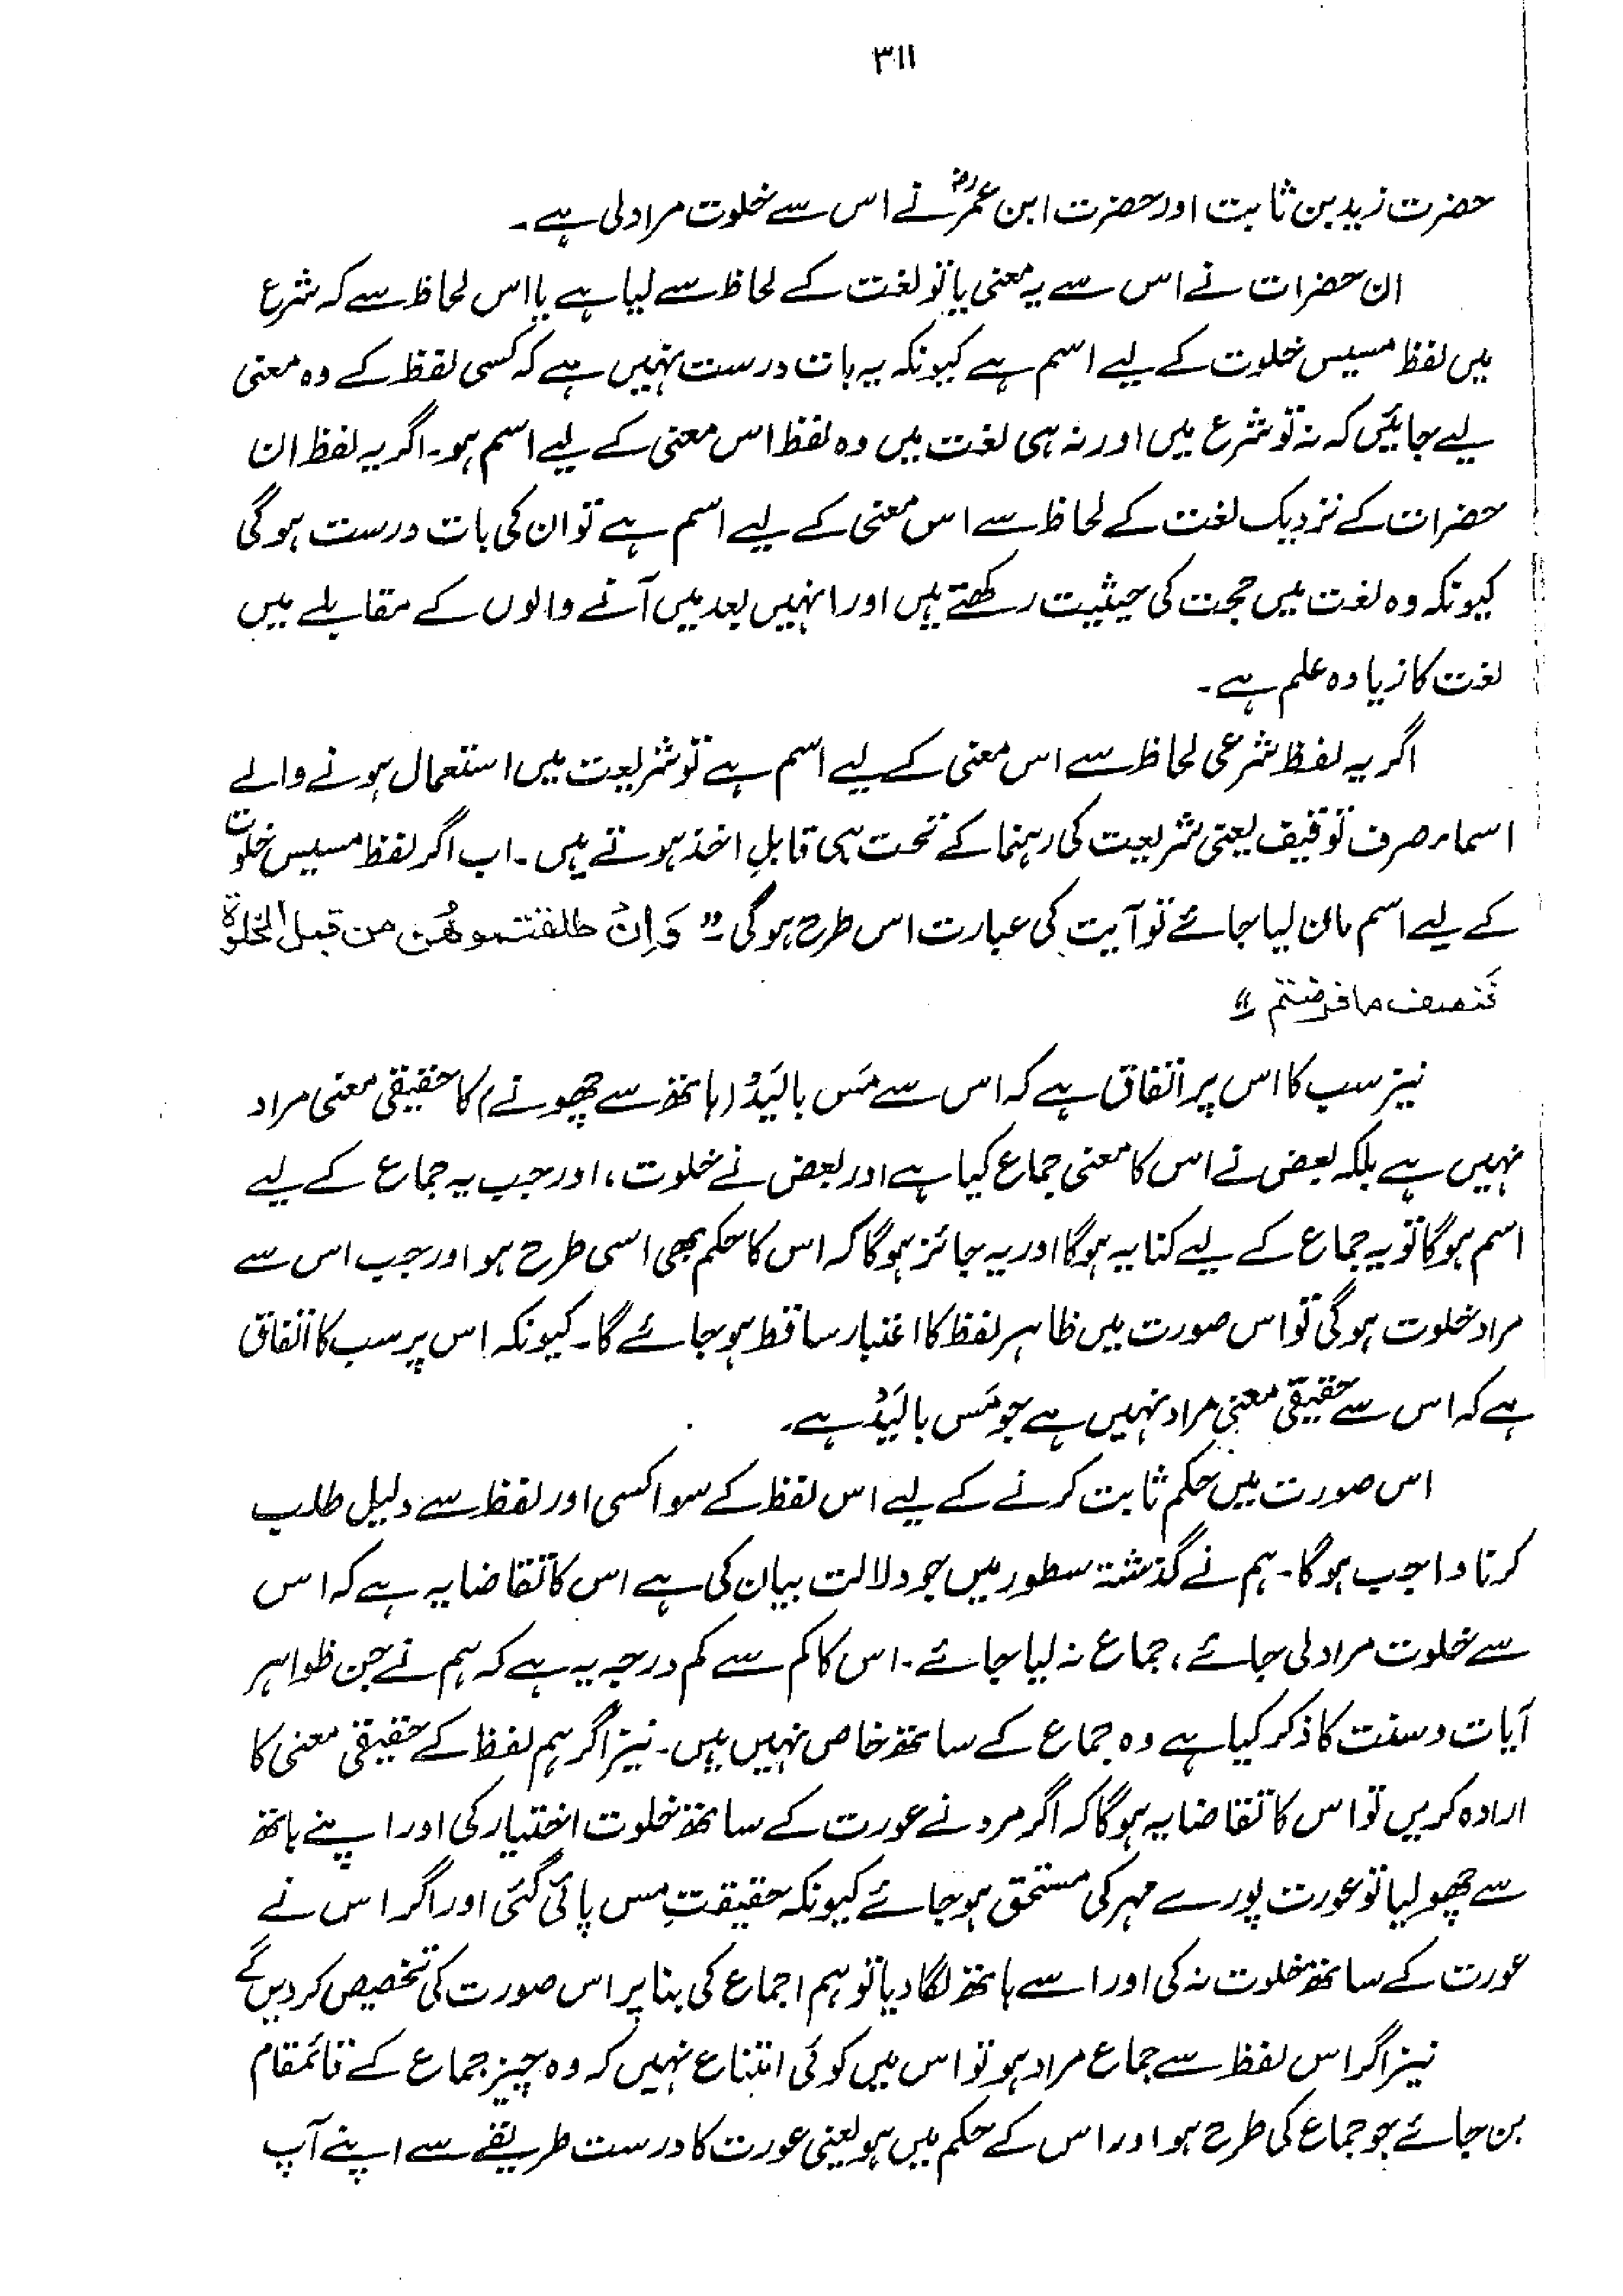 ۳۱۱
حضرت زید بن ثابت اور حضرت ابن عمرؓ نے اس سے خلوت مراد لی ہے۔
ان حضرات نے اس سے یہ معنی یا تو لغت کے لحاظ سے لیا ہے یا اس لحاظ سے کہ شرع
میں لفظ مسیس خلوت کے لیے اسم ہے کیونکہ یہ بات درست نہیں ہے کہ کسی لفظ کے وہ معنی
لیے جائیں کہ نہ تو شرع میں اور نہ ہی لغت میں وہ لفظ اس معنی کے لیے اسم ہو۔ اگر یہ لفظ ان
حضرات کے نزدیک لغت کے لحاظ سے اس معنی کے لیے اسم ہے تو ان کی بات درست ہوگی
کیونکہ وہ لغت میں حجت کی حیثیت رکھتے ہیں اور انہیں بعد میں آنے والوں کے مقابلے میں
لغت کا زیادہ علم ہے۔
اگر یہ لفظ شرعی لحاظ سے اس معنی کے لیے اسم ہے تو شریعت میں استعمال ہونے والے
اسماء صرف توقیف یعنی شریعت کی رہنما کے تحت ہی قابلِ اخذ ہوتے ہیں۔ اب اگر لفظ مسیس خلوت
کے لیے اسم مان لیا جائے تو آیت کی عبارت اس طرح ہوگی "وَاِنْ طلقتموهُن من قبل الخلوة
فنصف ما فرضتم"
نیز سب کا اس پر اتفاق ہے کہ اس سے مَس بالیَدْ (ہاتھ سے چھونے) کا حقیقی معنی مراد
نہیں ہے بلکہ بعض نے اس کا معنی جماع کیا ہے اور بعض نے خلوت، اور جب یہ جماع کے لیے
اسم ہوگا تو یہ جماع کے لیے کنایہ ہوگا اور یہ جائز ہوگا کہ اس کا حکم بھی اسی طرح ہو اور جب اس سے
مراد خلوت ہوگی تو اس صورت میں ظاہر لفظ کا اعتبار ساقط ہو جائے گا۔ کیونکہ اس پر سب کا اتفاق
ہے کہ اس سے حقیقی معنی مراد نہیں ہے جو مَس بالیَدْ ہے۔
اس صورت میں حکم ثابت کرنے کے لیے اس لفظ کے سوا کسی اور لفظ سے دلیل طلب
کرنا واجب ہوگا۔ ہم نے گذشتہ سطور میں جو دلالت بیان کی ہے اس کا تقاضا یہ ہے کہ اس
سے خلوت مراد لی جائے، جماع نہ لیا جائے۔ اس کا کم سے کم درجہ یہ ہے کہ ہم نے جن ظواہر
آیات و سنت کا ذکر کیا ہے وہ جماع کے ساتھ خاص نہیں ہیں۔ نیز اگر ہم لفظ کے حقیقی معنی کا
ارادہ کریں تو اس کا تقاضا یہ ہوگا کہ اگر مرد نے عورت کے ساتھ خلوت اختیار کی اور اپنے ہاتھ
سے چھو لیا تو عورت پورے مہر کی مستحق ہو جائے کیونکہ حقیقتِ مس پائی گئی اور اگر اس نے
عورت کے ساتھ خلوت نہ کی اور اسے ہاتھ لگا دیا تو ہم اجماع کی بنا پر اس صورت کی تخصیص کر دیں گے
نیز اگر اس لفظ سے جماع مراد ہو تو اس میں کوئی امتناع نہیں کہ وہ چیز جماع کے قائمقام
بن جائے جو جماع کی طرح ہو اور اس کے حکم میں ہو یعنی عورت کا درست طریقے سے اپنے آپ